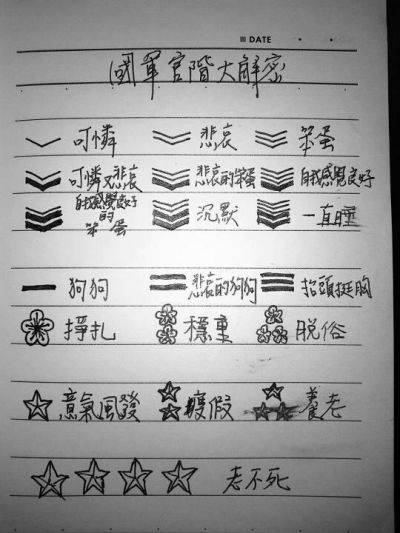 DATE
國軍官階大解密
可憐 悲哀 笨蛋
可憐又悲哀 悲哀的笨蛋 自我感覺良好
自我感覺良好的笨蛋 沉默 一直睡
狗狗 悲哀的狗狗 抬頭挺胸
掙扎 穩重 脫俗
意氣風發 渡假 養老
老不死